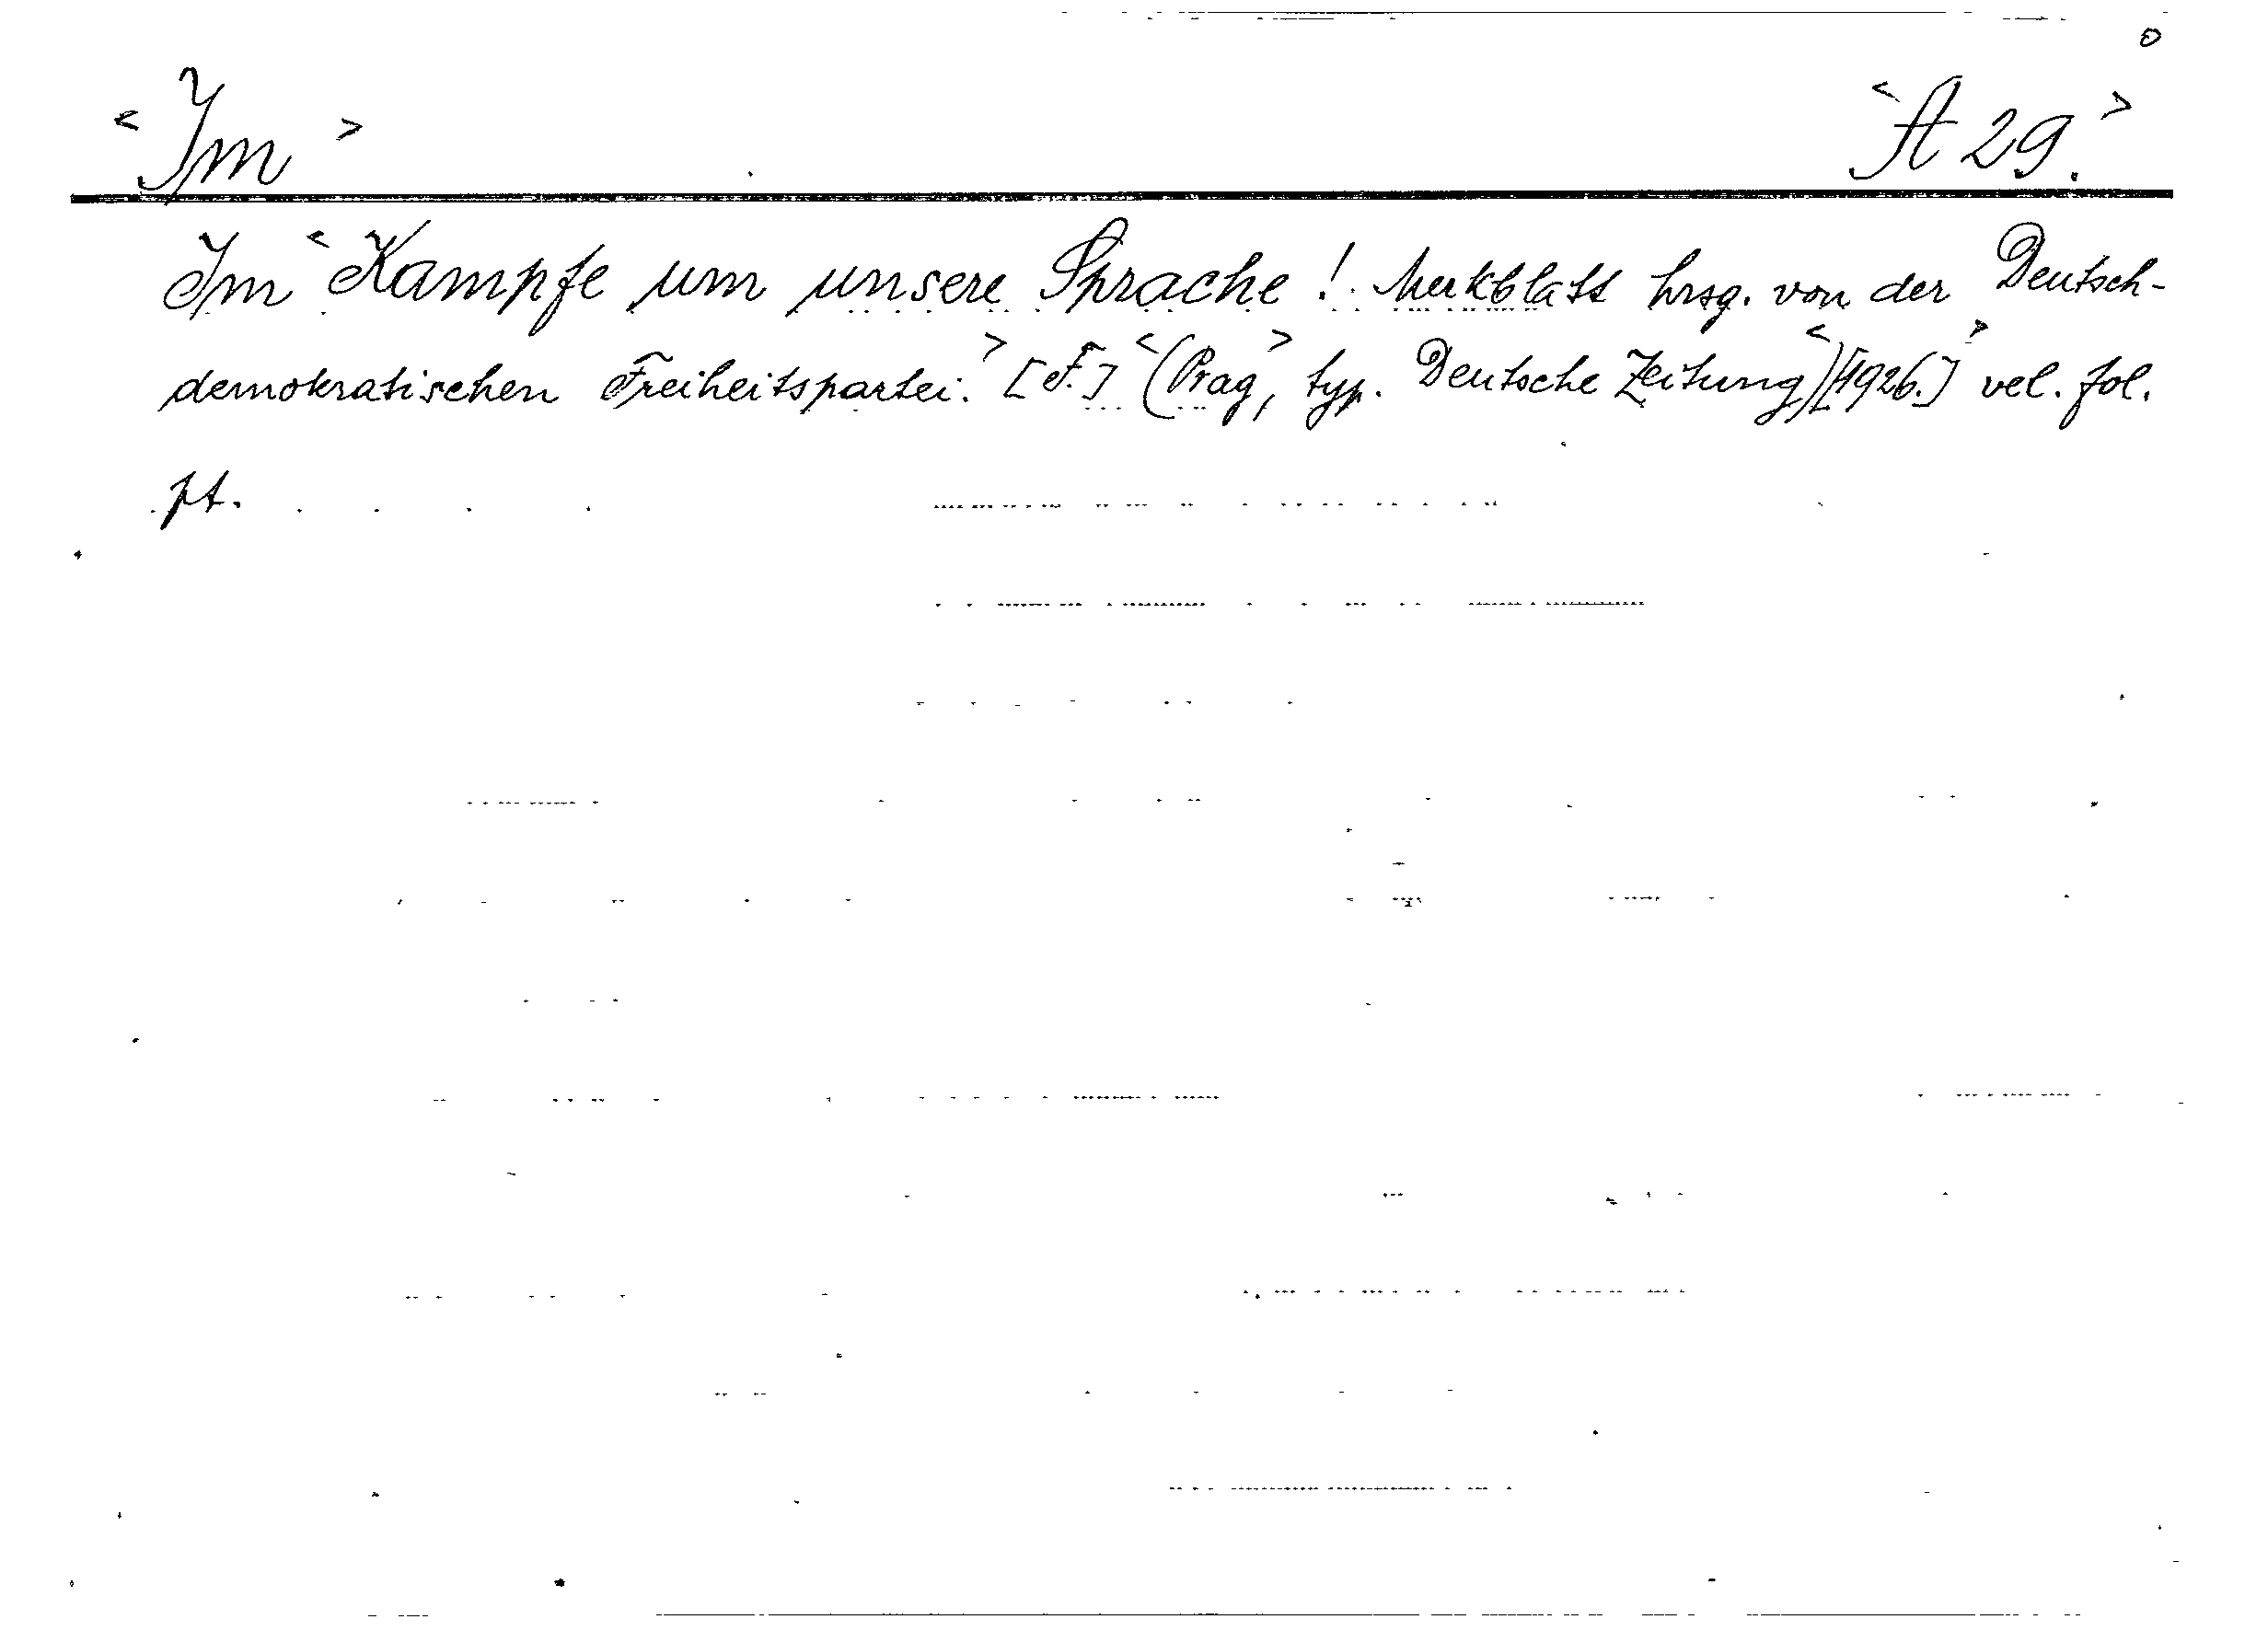 o
<Im> <A 29.>
Im <Kampfe um unsere Sprache! Merkblatt hrsg. von der Deutsch-
demokratischen Freiheitspartei.> [F.] <(Prag,> typ. Deutsche Zeitung<)[1926.]> vel. fol.
pt.